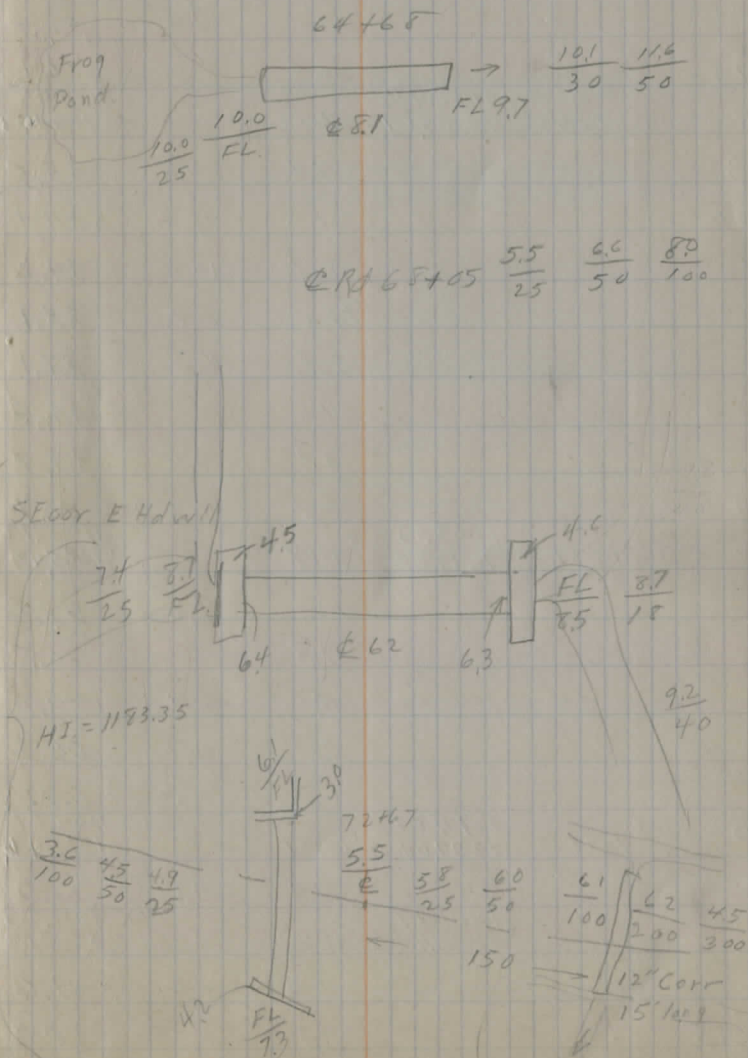 64+68
Frog
Pond
10.0/25 10.0/FL ℄ 8.1 FL 9.7 10.1/30 11.6/50
℄ Rd 68+05 5.5/25 6.6/50 8.0/100
SE cor. E Hdwll
4.5 4.6
7.4/25 8.1/FL FL/8.5 8.7/18
6.4 ℄ 6.2 6.3
9.2/40
HI. = 1193.35
6.1/FL 3.0
72+67
3.6/100 4.5/50 4.9/25 5.5/℄ 5.8/25 6.0/50 6.1/100 6.2/200 4.5/300
150
12" Corr
15' long
4.2 FL/7.3